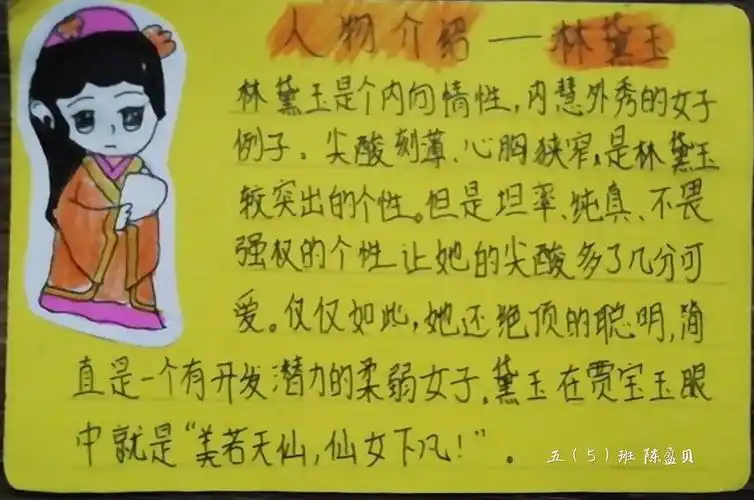 人物介绍——林黛玉
林黛玉是个内向情性，内慧外秀的女子
例子。尖酸刻薄、心胸狭窄，是林黛玉
较突出的个性。但是坦率、纯真、不畏
强权的个性让她的尖酸多了几分可
爱。仅仅如此，她还绝顶的聪明，简
直是一个有开发潜力的柔弱女子。黛玉在贾宝玉眼
中就是“美若天仙，仙女下凡！”。
五（5）班 陈盈贝